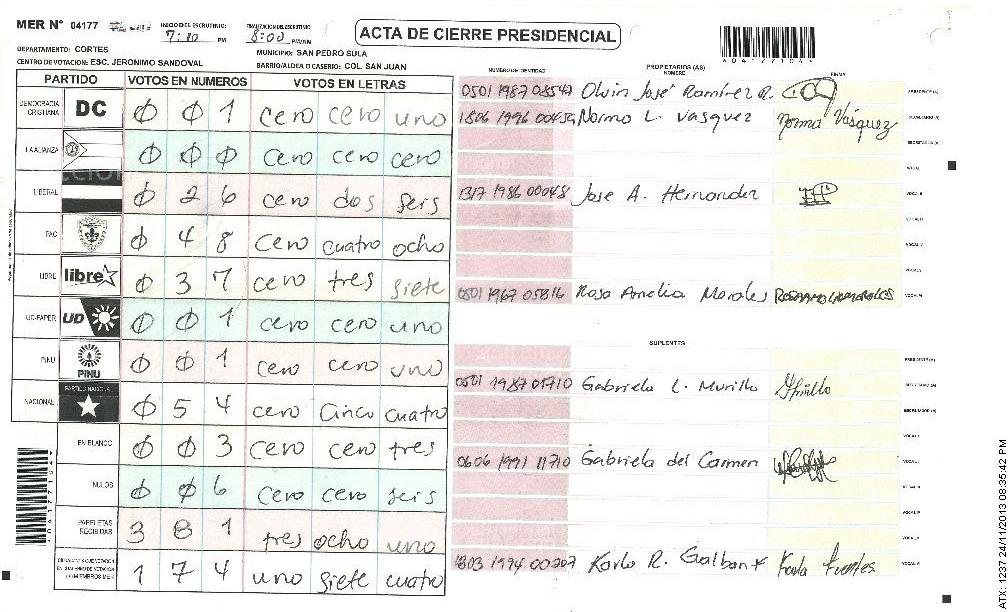 MER N° 04177
INICIO DEL ESCRUTINIO: 7:10 PM
FINALIZACION DEL ESCRUTINIO 8:00 PM/AM
ACTA DE CIERRE PRESIDENCIAL
DEPARTAMENTO: CORTES
MUNICIPIO: SAN PEDRO SULA
CENTRO DE VOTACION: ESC. JERONIMO SANDOVAL
BARRIO/ALDEA O CASERIO: COL. SAN JUAN
PARTIDO VOTOS EN NUMEROS VOTOS EN LETRAS
DEMOCRACIA CRISTIANA DC 0 0 1 cero cero uno
LA ALIANZA 0 0 0 cero cero cero
LIBERAL 0 2 6 cero dos seis
PAC 0 4 8 cero cuatro ocho
LIBRE libre 0 3 7 cero tres siete
UD-FAPER UD 0 0 1 cero cero uno
PINU PINU 0 0 1 cero cero uno
NACIONAL PARTIDO NACIONAL 0 5 4 cero cinco cuatro
EN BLANCO 0 0 3 cero cero tres
NULOS 0 0 6 cero cero seis
PAPELETAS RECIBIDAS 3 8 1 tres ocho uno
1 7 4 uno siete cuatro
NUMERO DE IDENTIDAD PROPIETARIOS (AS) NOMBRE FIRMA
0501 1987 08547 Olvin José Ramírez R. PRESIDENTE (A)
1806 1996 Norma L. Vasquez Norma Vásquez SECRETARIO (A)
ESCRUTADOR (A)
VOCAL I
1317 1986 00048 Jose A. Hernandez VOCAL II
VOCAL III
VOCAL IV
VOCAL V
0501 1967 05816 Rosa Amelia Morales VOCAL VI
SUPLENTES
PRESIDENTE (A)
0501 1987 01710 Gabriela L. Murillo SECRETARIO (A)
ESCRUTADOR (A)
VOCAL I
0606 1991 11710 Gabriela del Carmen VOCAL II
VOCAL III
VOCAL IV
VOCAL V
1803 1994 Karla R. Karla Fuentes VOCAL VI
*04177104*
ATX: 1237 24/11/2013 08:35:42 PM